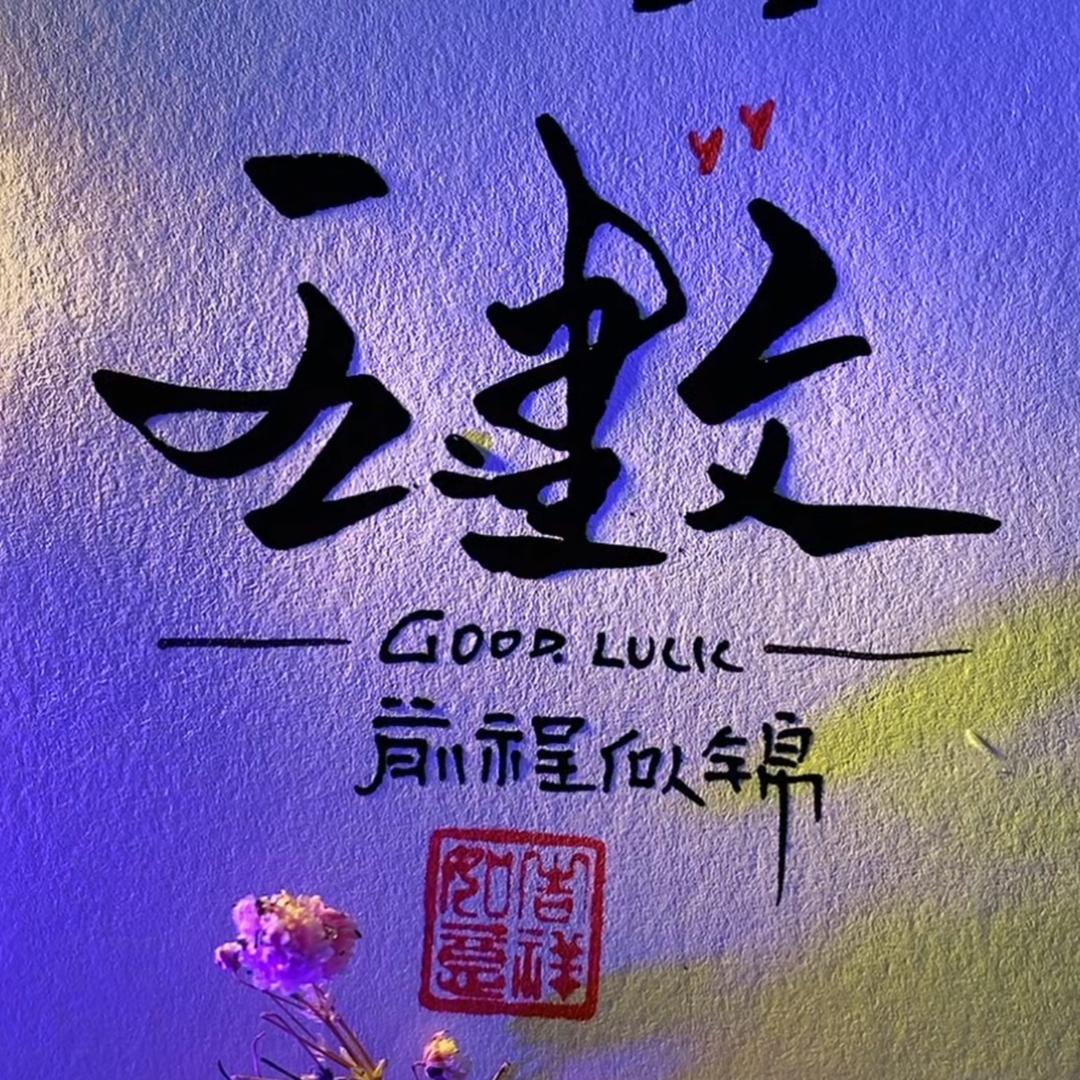 建文
GOOD. LUCK
前程似锦
吉祥
如意